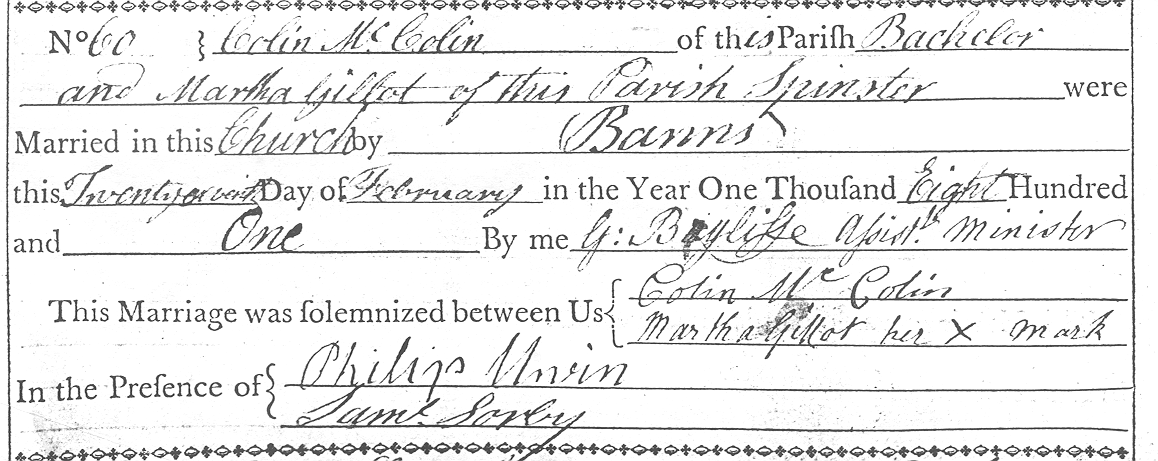 Nº 60 } Colin Mc Colin of this Pariſh Bachelor
and Martha Gillot of this Parish Spinster were
Married in this Church by Banns
this Day of February in the Year One Thouſand Eight Hundred
and One By me G: Bayliffe Aſsist.t Minister
This Marriage was ſolemnized between Us { Colin Mc Colin
Martha Gillot her X mark
In the Preſence of { Philip Unwin
Saml Sorby